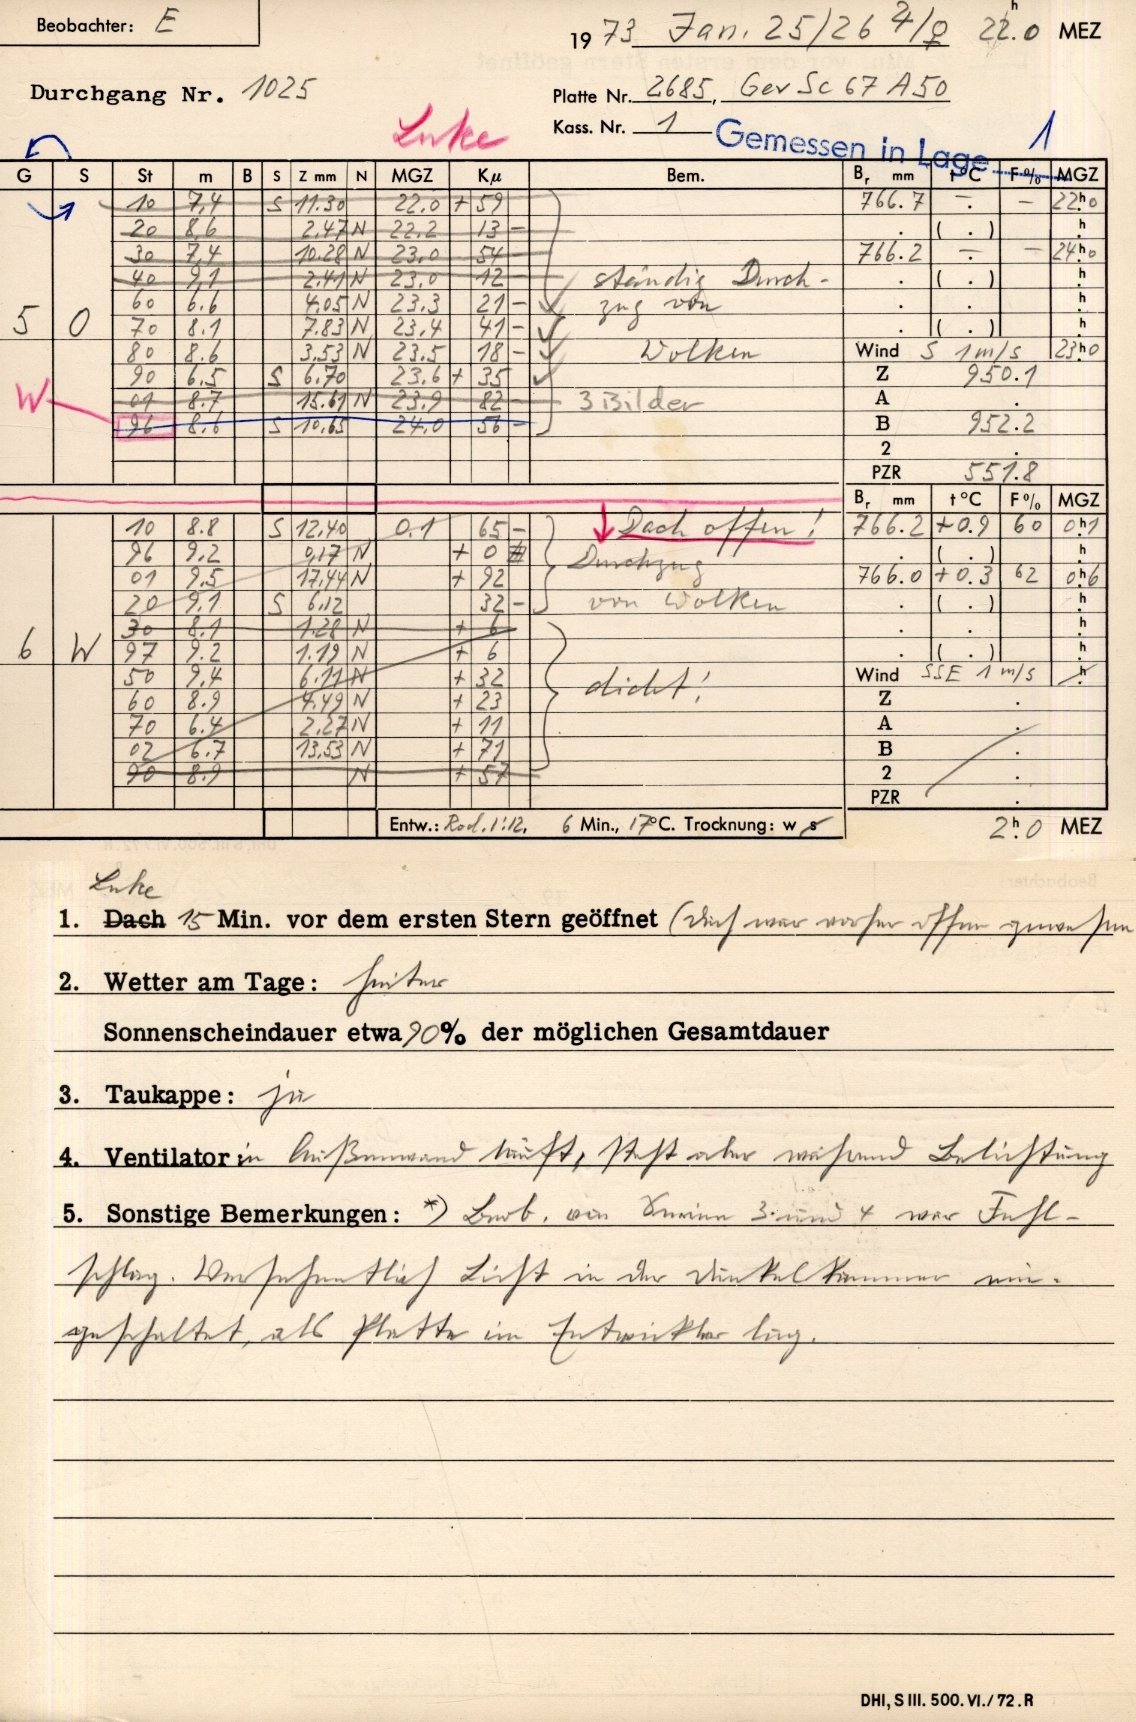 Beobachter: E
1973 Jan. 25/26 ♃/♀ 22ʰ.0 MEZ
Durchgang Nr. 1025
Platte Nr. 2685, GevSc 67 A50
Luke
Kass. Nr. 1
Gemessen in Lage 1
G S St m B S Z mm N MGZ Kµ Bem. Br mm t°C F% MGZ
10 7,4 S 11.30 22.0 + 59 766.7 -. - 22ʰ.0
20 8,6 2.47 N 22.2 13 - . ( . ) ʰ.
30 7,4 10.28 N 23.0 54 - 766.2 -. - 24ʰ.0
40 9,1 2.41 N 23.0 12 - ständig Durch- . ( . ) ʰ.
60 6.6 4.05 N 23.3 21 - zug von . . ʰ.
5 O 70 8.1 7.83 N 23,4 41 - . ( . ) ʰ.
80 8.6 3.53 N 23.5 18 - Wolken Wind S 1 m/s 23ʰ.0
90 6,5 S 6.70 23.6 + 35 Z 950.1
W 01 8.7 15.61 N 23.9 82 - 3 Bilder A .
96 8.6 S 10.65 24.0 56 - B 952.2
2 .
PZR 551.8
Br mm t°C F% MGZ
10 8.8 S 12.40 0.1 65 - Dach offen! 766.2 +0.9 60 0ʰ.1
96 9.2 0,17 N + 0 Durchzug . ( . ) ʰ.
01 9,5 17.44 N + 92 766.0 +0.3 62 0ʰ.6
20 9.1 S 6.12 32 - von Wolken . ( . ) ʰ.
30 8.1 1.28 N + 6 . . ʰ.
6 W 97 9.2 1.19 N + 6 . ( . ) ʰ.
50 9,4 6.11 N + 32 dicht! Wind SSE 1 m/s ʰ.
60 8.9 4.49 N + 23 Z .
70 6.4 2.27 N + 11 A .
02 6.7 13,53 N + 71 B .
90 8.9 N + 57 2 .
PZR .
Entw.: Rod. 1:12, 6 Min., 17°C. Trocknung: w s 2ʰ.0 MEZ
Luke
1. Dach 15 Min. vor dem ersten Stern geöffnet (Dach war vorher offen gewesen
2. Wetter am Tage: heiter
Sonnenscheindauer etwa 90% der möglichen Gesamtdauer
3. Taukappe: ja
4. Ventilator: in Außenwand läuft, steht aber während Belichtung
5. Sonstige Bemerkungen: *) Beob. von Serien 3. und 4 war Fehl-
schlag. Versehentlich Licht in der Dunkelkammer ein-
geschaltet, als Platte im Entwickler lag.
DHI, S III. 500. VI./72. R